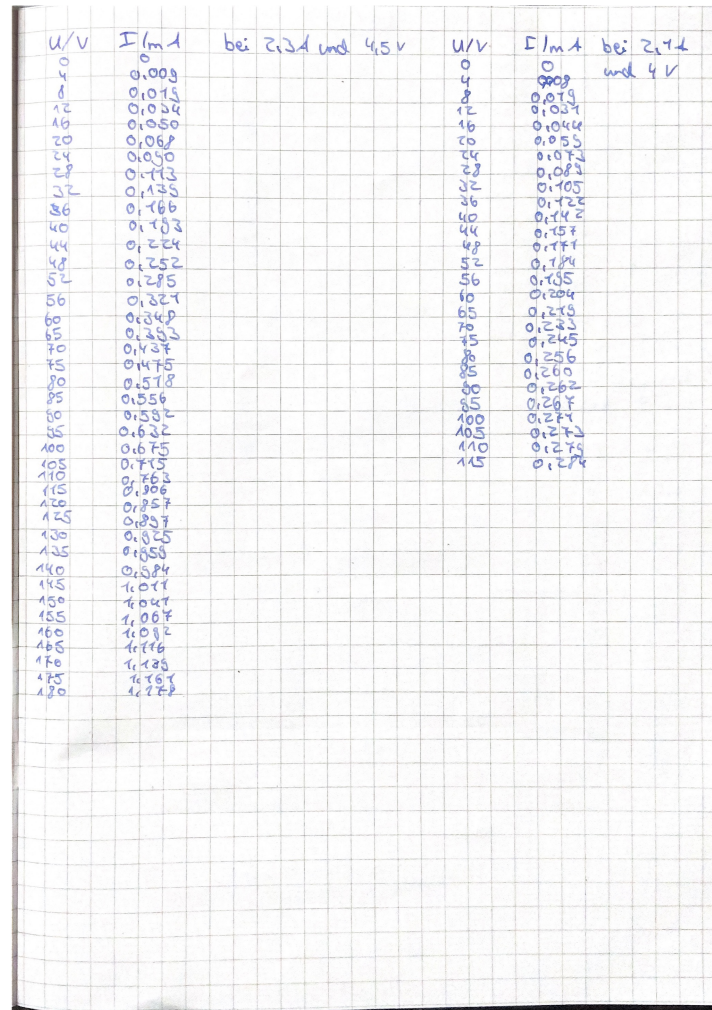 U/V I/mA bei 2,3A und 4,5V
0 0
4 0,009
8 0,019
12 0,034
16 0,050
20 0,068
24 0,090
28 0,113
32 0,139
36 0,166
40 0,193
44 0,224
48 0,252
52 0,285
56 0,321
60 0,348
65 0,393
70 0,437
75 0,475
80 0,518
85 0,556
90 0,592
95 0,632
100 0,675
105 0,715
110 0,763
115
120 0,857
125 0,897
130 0,925
135 0,959
140 0,984
145 1,011
150 1,041
155 1,067
160 1,092
165 1,116
170 1,139
175 1,161
180 1,178
U/V I/mA bei 2,1A
und 4V
0 0
4
8 0,019
12 0,031
16 0,044
20 0,059
24 0,073
28 0,089
32 0,105
36 0,122
40 0,142
44 0,157
48 0,171
52 0,184
56 0,195
60 0,204
65 0,219
70 0,233
75 0,245
80 0,256
85 0,260
90 0,262
95 0,267
100 0,271
105 0,273
110 0,279
115 0,284